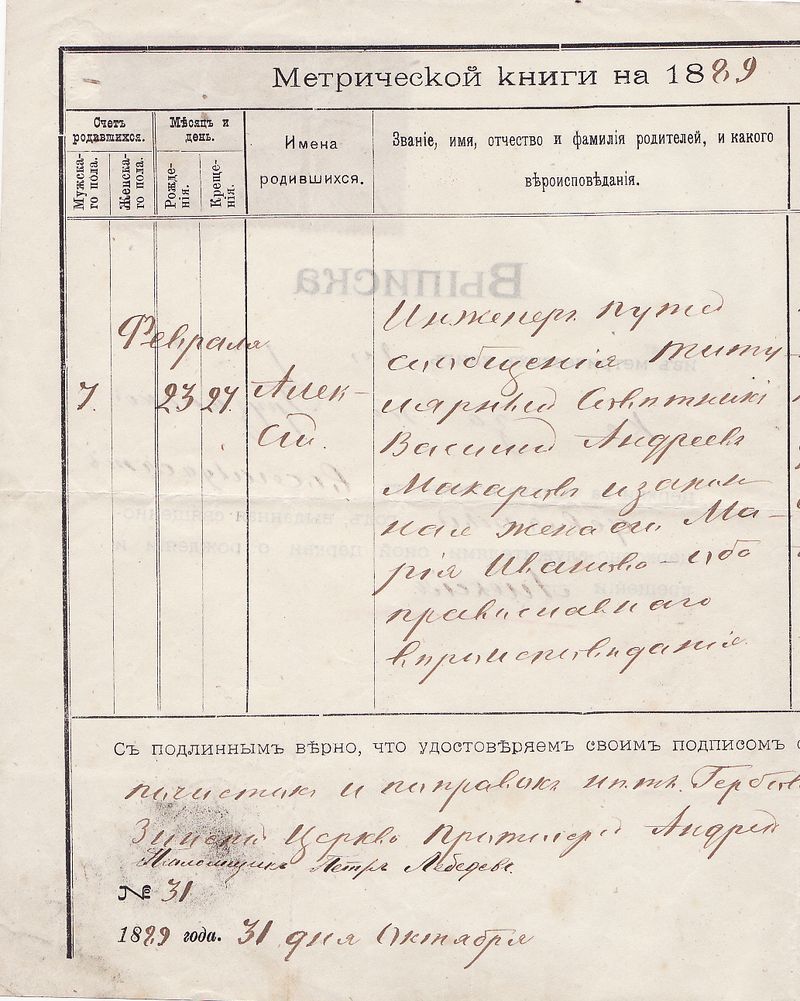 Метрической книги на 1889
Счетъ родавшихся.
Мужска-
го пола.
Женска-
го пола.
Мѣсяцъ и день.
Рожде-
нія.
Креще-
нія.
Имена
родившихся.
Званіе, имя, отчество и фамилія родителей, и какого
вѣроисповѣданія.
Февраля
7. 23 27. Алек-
сѣй.
Инженеръ путей
сообщенія Титу
лярный Совѣтникъ
Василій Андреевъ
Макаровъ и закон
ная жена его Ма-
рія Иванова - оба
православнаго
вѣроисповѣданія.
Съ подлиннымъ вѣрно, что удостовѣряемъ своимъ подписомъ с
почистокъ и поправокъ нѣтъ.
Церкви Протоіерей Андрей
Псаломщикъ Петръ Лебедевъ.
№ 31
1889 года. 31 дня Октября
Выписка